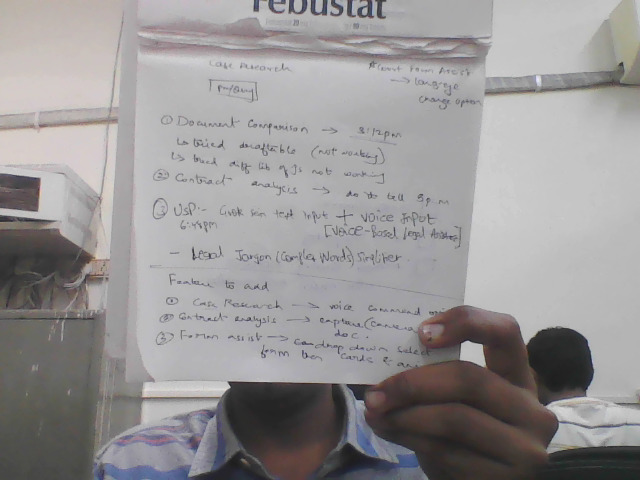 Febustat
Case Research
Court Form Assist
→ language
change option
① Document Comparison → 8:12pm
↳ tried (not working)
↳ tried diff lib of js not working
② Contract analysis → do to tell 9 p.m
③ USP:- text input + voice input
6:48pm [Voice-Based Legal]
- Legal Jargon (Complex Words) Simplifier.
Feature to add
① Case Research → voice command
② Contract analysis → capture (Camera
doc.
③ Form assist → drop down select
form then cards &